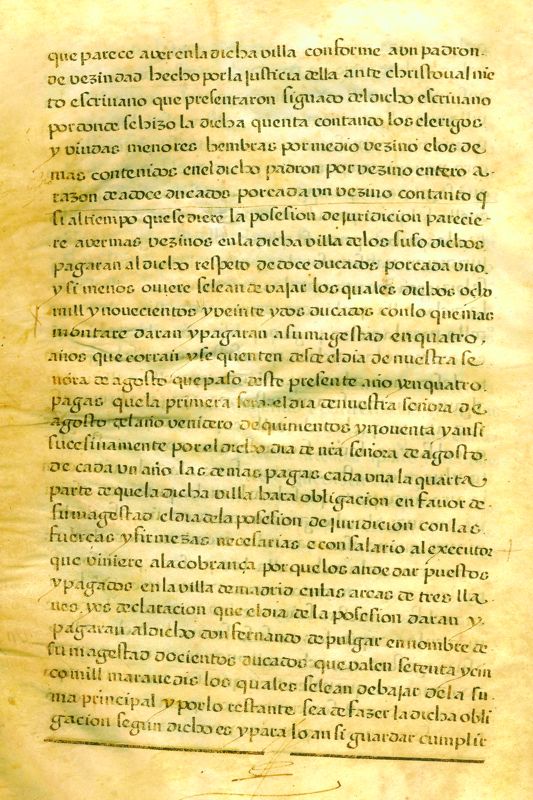 que parece aver en la dicha villa conforme a un padron.
de vezindad hecho por la justicia della ante christoval nie
to escrivano que presentaron signado del dicho escrivano
por donde se hizo la dicha quenta contando los clerigos
y viudas menores hembras por medio vezino e los de
mas contenidos en el dicho padron por vezino entero a
razon de a doce ducados por cada un vezino con tanto q
si al tiempo que se diere la posesion de juridicion parecie-
re aver mas vezinos en la dicha villa de los suso dichos
pagaran al dicho respeto de doce ducados por cada uno.
y si menos oviere se le an de vajar los quales dichos ocho
mill y novecientos y veinte y dos ducados con lo que mas
montare daran y pagaran a su magestad en quatro,
años que corran y se quenten desde el dia de nuestra se
ñora de agosto que paso deste presente año y en quatro.
pagas que la primera sera el dia de nuestra señora de
agosto del año venidero de quinientos y noventa y ansi
sucesivamente por el dicho dia de nra señora de agosto.
de cada un año las demas pagas cada una la quarta
parte de que la dicha villa hara obligacion en favor de
su magestad el dia de la posesion de juridicion con las
fuerças y firmezas necesarias e con salario al executor
que viniere a la cobrança por que los an de dar puestos
y pagados en la villa de madrid en las arcas de tres lla
ves, y es declaracion que el dia de la posesion daran y
pagaran al dicho don fernando de pulgar en nombre de
su magestad docientos ducados que valen setenta y cin
co mill maravedis los quales se le an de bajar de la su
ma principal y por lo restante sea de fazer la dicha obli
gacion segun dicho es y para lo ansi guardar cumplir